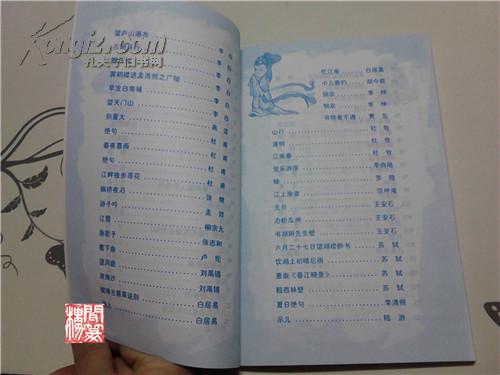 Kongfz.com
孔夫子旧书网
望庐山瀑布 李白
李白
李白
黄鹤楼送孟浩然之广陵 李白
早发白帝城 李白
望天门山 李白
别董大 高适
绝句 杜甫
春夜喜雨 杜甫
绝句 杜甫
江畔独步寻花 杜甫
枫桥夜泊 张继
游子吟 孟郊
江雪 柳宗元
渔歌子 张志和
塞下曲 卢纶
望洞庭 刘禹锡
浪淘沙 刘禹锡
赋得古原草送别 白居易
白居易
忆江南 白居易
小儿垂钓 胡令能
悯农 李绅
悯农 李绅
寻隐者不遇 贾岛
山行 杜牧
清明 杜牧
江南春 杜牧
登乐游原 李商隐
蜂 罗隐
江上渔者 范仲淹
元日 王安石
泊船瓜洲 王安石
书湖阴先生壁 王安石
六月二十七日望湖楼醉书 苏轼
饮湖上初晴后雨 苏轼
惠崇《春江晚景》 苏轼
题西林壁 苏轼
夏日绝句 李清照
示儿 陆游